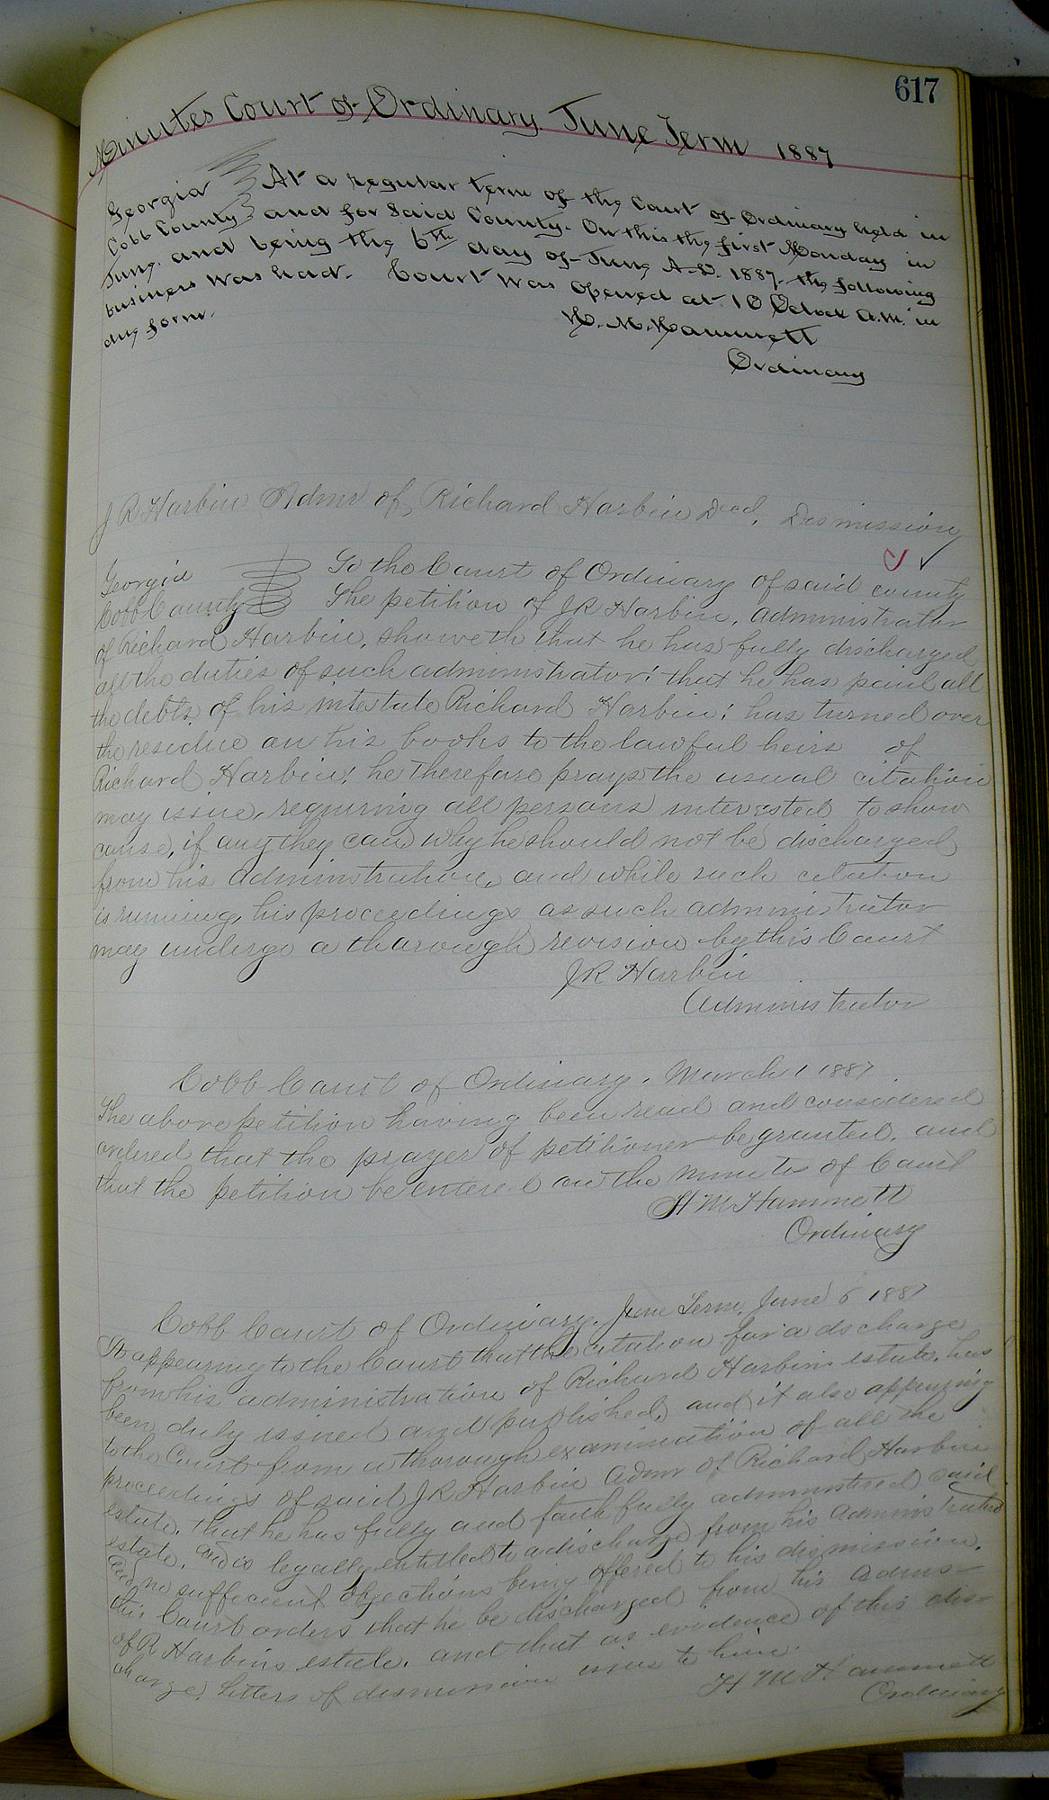 617
Minutes Court of Ordinary June Term 1887
Georgia At a regular term of the Court of Ordinary held in
Cobb County and for Said County. On this the first Monday in
June. and being the 6th day of June A.D. 1887. the following
business was had. Court was opened at 10 Oclock a.m. in
due form.
H. M. Hammett
Ordinary
J R Harbin Admr of Richard Harbin Decd. Dismission
Georgia To the Court of Ordinary of said county
Cobb County The petition of J R Harbin, administrator
of Richard Harbin, showeth that he has fully discharged
all the duties of such administrator: that he has paid all
the debts of his intestate Richard Harbin: has turned over
the residue on his books to the lawful heirs of
Richard Harbin: he therefore prays the usual citation
may issue, requiring all persons interested to show
cause, if any they can why he should not be discharged
from his administration, and while such citation
is running, his proceedings as such administrator
may undergo a thorough revision by this Court
J R Harbin
Administrator
Cobb Court of Ordinary. March 1 1887
The above petition having been read and considered
ordered that the prayer of petitioner be granted. and
that the petition be entered on the minutes of Court
H M Hammett
Ordinary
Cobb Court of Ordinary. June Term, June 6 1887
It appearing to the Court that the citation for a discharge
from his administration of Richard Harbins estate, has
been duly issued and published, and it also appearing
to the Court from a thorough examination of all the
proceedings of said J R Harbin Admr of Richard Harbin
estate, that he has fully and faithfully administered said
estate, and is legally entitled to a discharge from his administration
And no sufficient objections being offered to his dismission.
this Court orders that he be discharged from his Adms-
of R Harbins estate. and that as evidence of this dis-
charge, letters of dismission issue to him.
H M Hammett
Ordinary